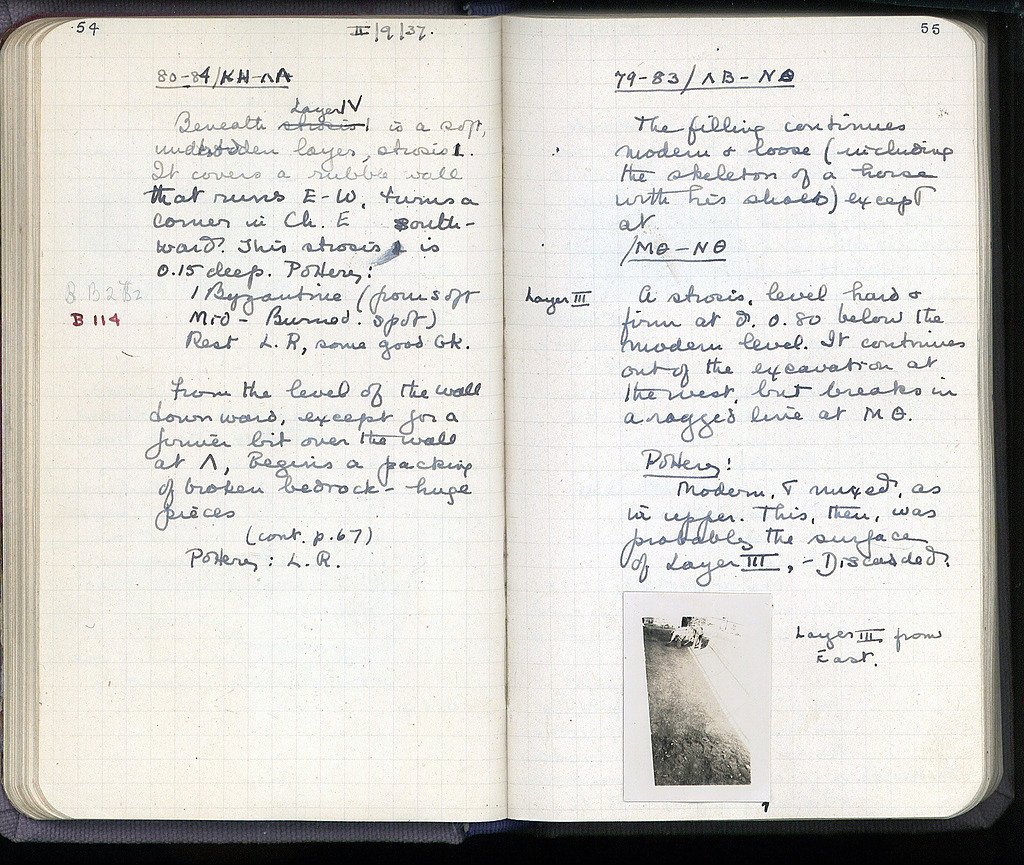 54
II/9/37.
80-84/KH-ΛΑ
Layer IV
Beneath strosis 1 is a soft,
undertrodden layer, strosis 1.
It covers a rubble wall
that runs E-W, turns a
corner in Ch. E South-
ward. This strosis is
0.15 deep. Pottery:
1 Byzantine (from soft
B 114
Mid- Burned. spot)
Rest L.R, some good Gk.
From the level of the wall
downward, except for a
former bit over the wall
at Λ, Begins a packing
of broken bedrock - huge
pieces
(cont. p.67)
Pottery: L.R.
55
79-83/ΛΒ-ΝΘ
The filling continues
modern & loose (including
the skeleton of a horse
with his shoes) except
at
/ΜΘ-ΝΘ
Layer III
A strosis, level hard &
firm at d. 0.80 below the
modern level. It continues
out of the excavation at
the west, but breaks in
a ragged line at ΜΘ.
Pottery:
Modern, T mixed, as
in upper. This, then, was
probably the surface
of Layer III, - Discarded.
Layer III from
East.